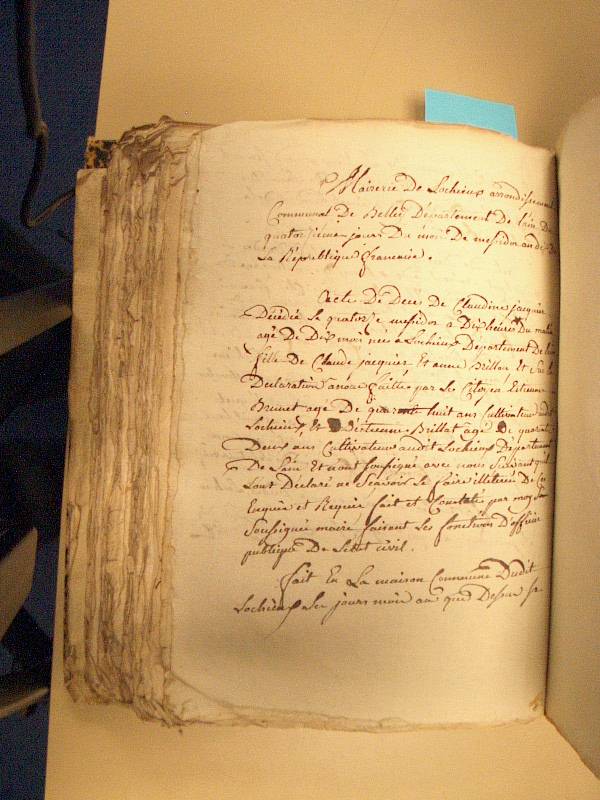 Mairerie De Lochieux arrondissement
Communal De Belley Département de l'ain Du
quatorzieme jours Du mois De messidor an
La République françoise.
acte De Deces De Claudine jacquier
Décédée Le quatorze messidor à Dix heures Du matin
agé De Dix mois née à Lochieux Département de l'ain
fille De Claude jacquier Et anne Brillat Et sur la
Declaration a nous faitte par Le Citoyen Etienne
agé De quarante huit ans Cultivateur audit
Lochieux, Et D'étienne Brillat agé De quarante
Deux ans Cultivateur audit Lochieux Département
De Lain Et n'ont soussigné avec nous suivant qu'il
L'ont Declaré ne Scavoir Le faire illiterés De Ce
Enquis et Requis fait et Constaté par moy
Soussigné maire faisant Les fonctions D'officier
publique De Letat civil.
fait En La maison Commune Dudit
Lochieux Les jours mois an que Dessus